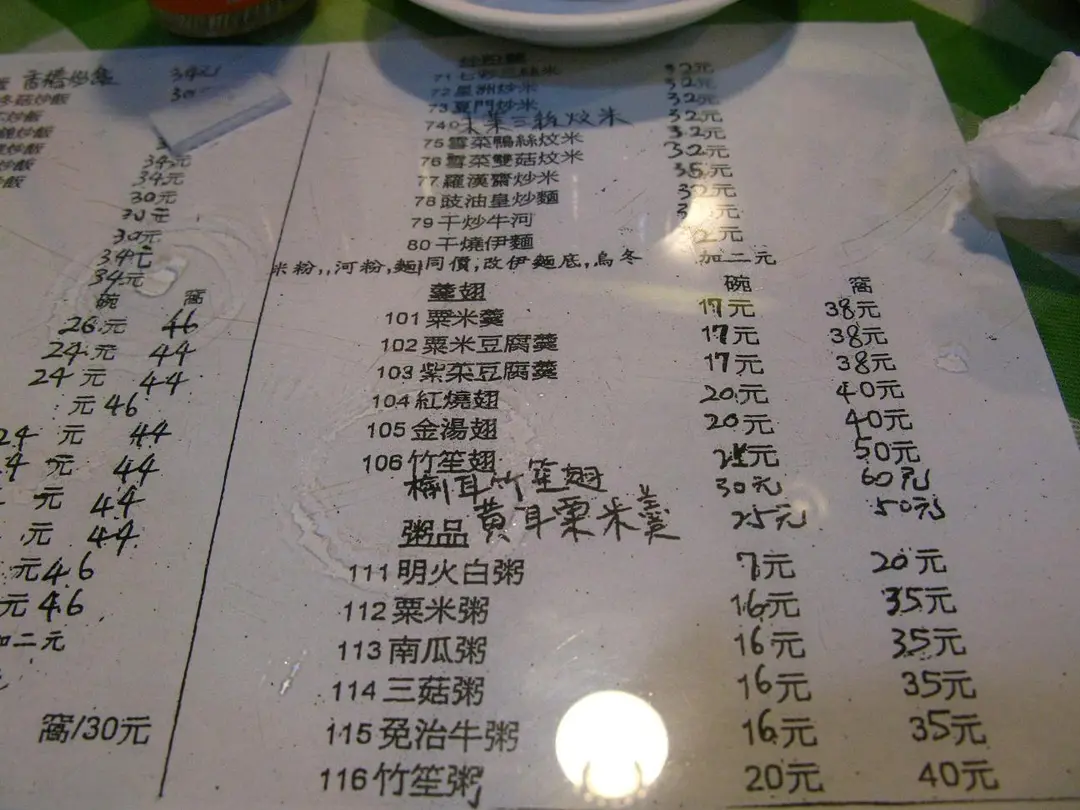 香椿炒飯 34元
冬菇炒飯 30
炒飯
炒飯 34元
炒飯 34元
30元
30元
30元
34元
34元
碗 窩
26元 46
24元 44
24元 44
元 46
24元 44
4元 44
元 44
元 44
元 46
元 46
加二元
窩/30元
71 七彩三絲米 32元
72 星洲炒米 32元
73 夏門炒米 32元
74 菜三絲炆米 32元
75 雪菜鴨絲炆米 32元
76 雪菜雙菇炆米 32元
77 羅漢齋炒米 35元
78 豉油皇炒麵 32元
79 干炒牛河 元
80 干燒伊麵 2元
米粉,,河粉,麵同價,改伊麵底,烏冬 加二元
羹翅 碗 窩
101 粟米羹 17元 38元
102 粟米豆腐羹 17元 38元
103 紫菜豆腐羹 17元 38元
104 紅燒翅 20元 40元
105 金湯翅 20元 40元
106 竹笙翅 25元 50元
榆耳竹笙翅 30元 60元
黄耳粟米羹 25元 50元
粥品
111 明火白粥 7元 20元
112 粟米粥 16元 35元
113 南瓜粥 16元 35元
114 三菇粥 16元 35元
115 免治牛粥 16元 35元
116 竹笙粥 20元 40元